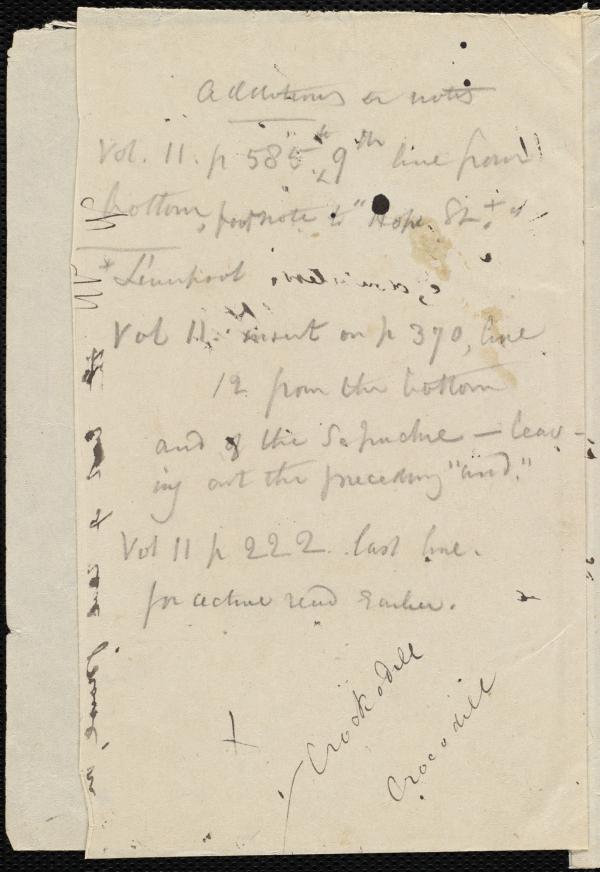 Additions or notes
Vol. 11. p 585. 9th line from
bottom, footnote to "Hope St. + "
+ Liverpool
Vol 11. insert on p 370, line
12 from the bottom
and of the Sepulchre — leav-
ing out the preceding "and."
Vol 11 p 222 last line.
for active read Earlier.
Crockodill
Crocodill